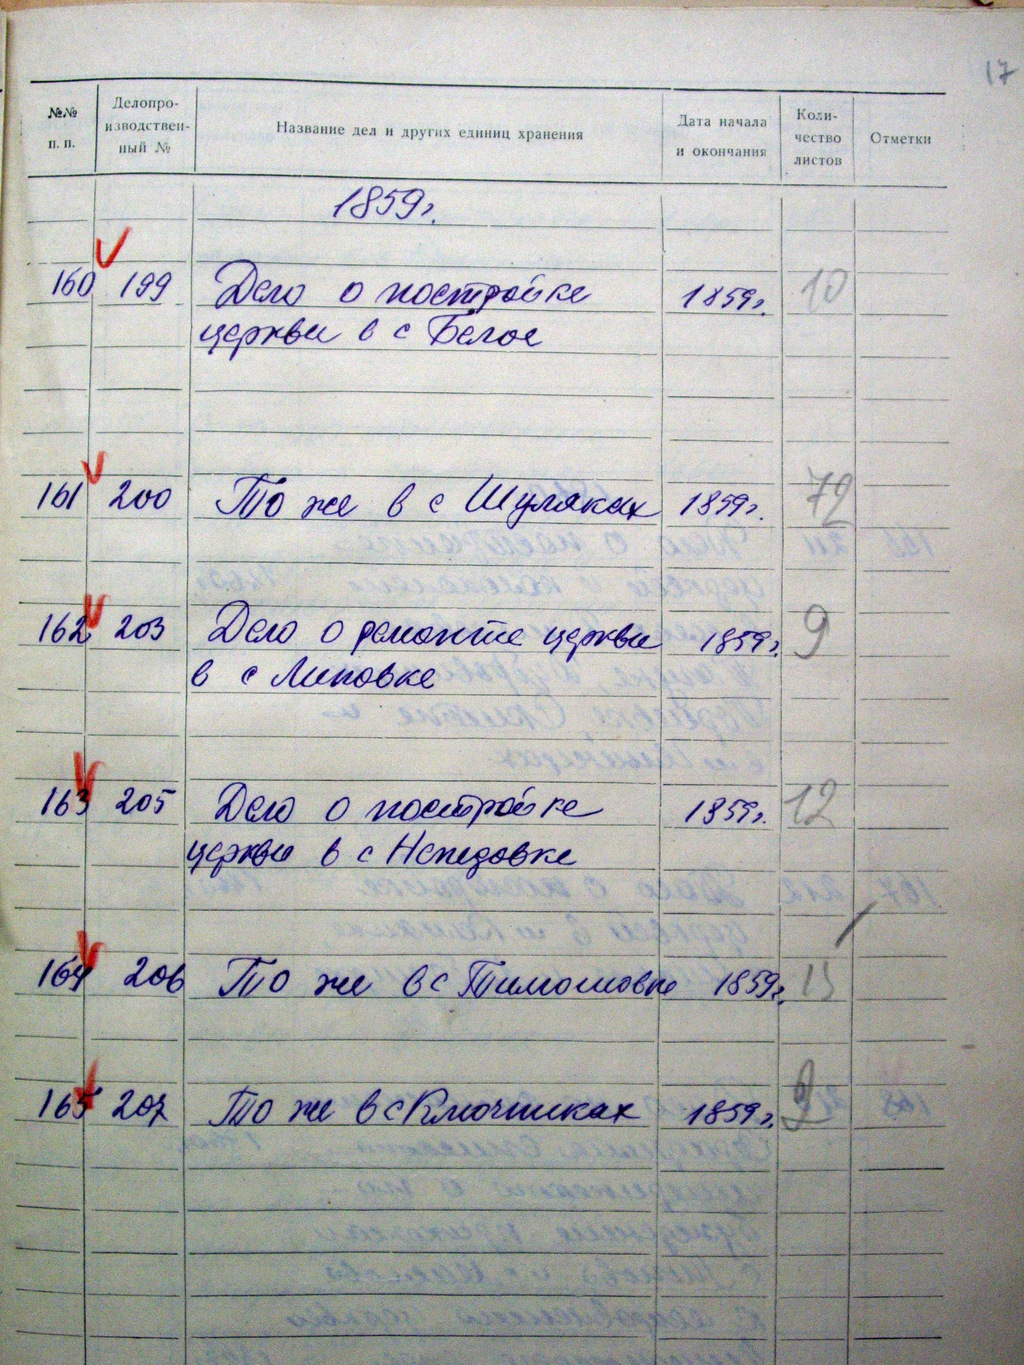 17
№№ п. п. Делопро-изводствен-ный № Название дел и других единиц хранения Дата начала и окончания Коли-чество листов Отметки
1859г.
160 199 Дело о постройке 1859г. 10
церкви в с Белое
161 200 То же в с Шуляках 1859г. 72
162 203 Дело о ремонте церкви 1859г. 9
в с Липовке
163 205 Дело о постройке 1859г. 12
церкви в с Непедовке
164 206 То же в с Тимошовке 1859г. 13
165 207 То же в с Ключниках 1859г.